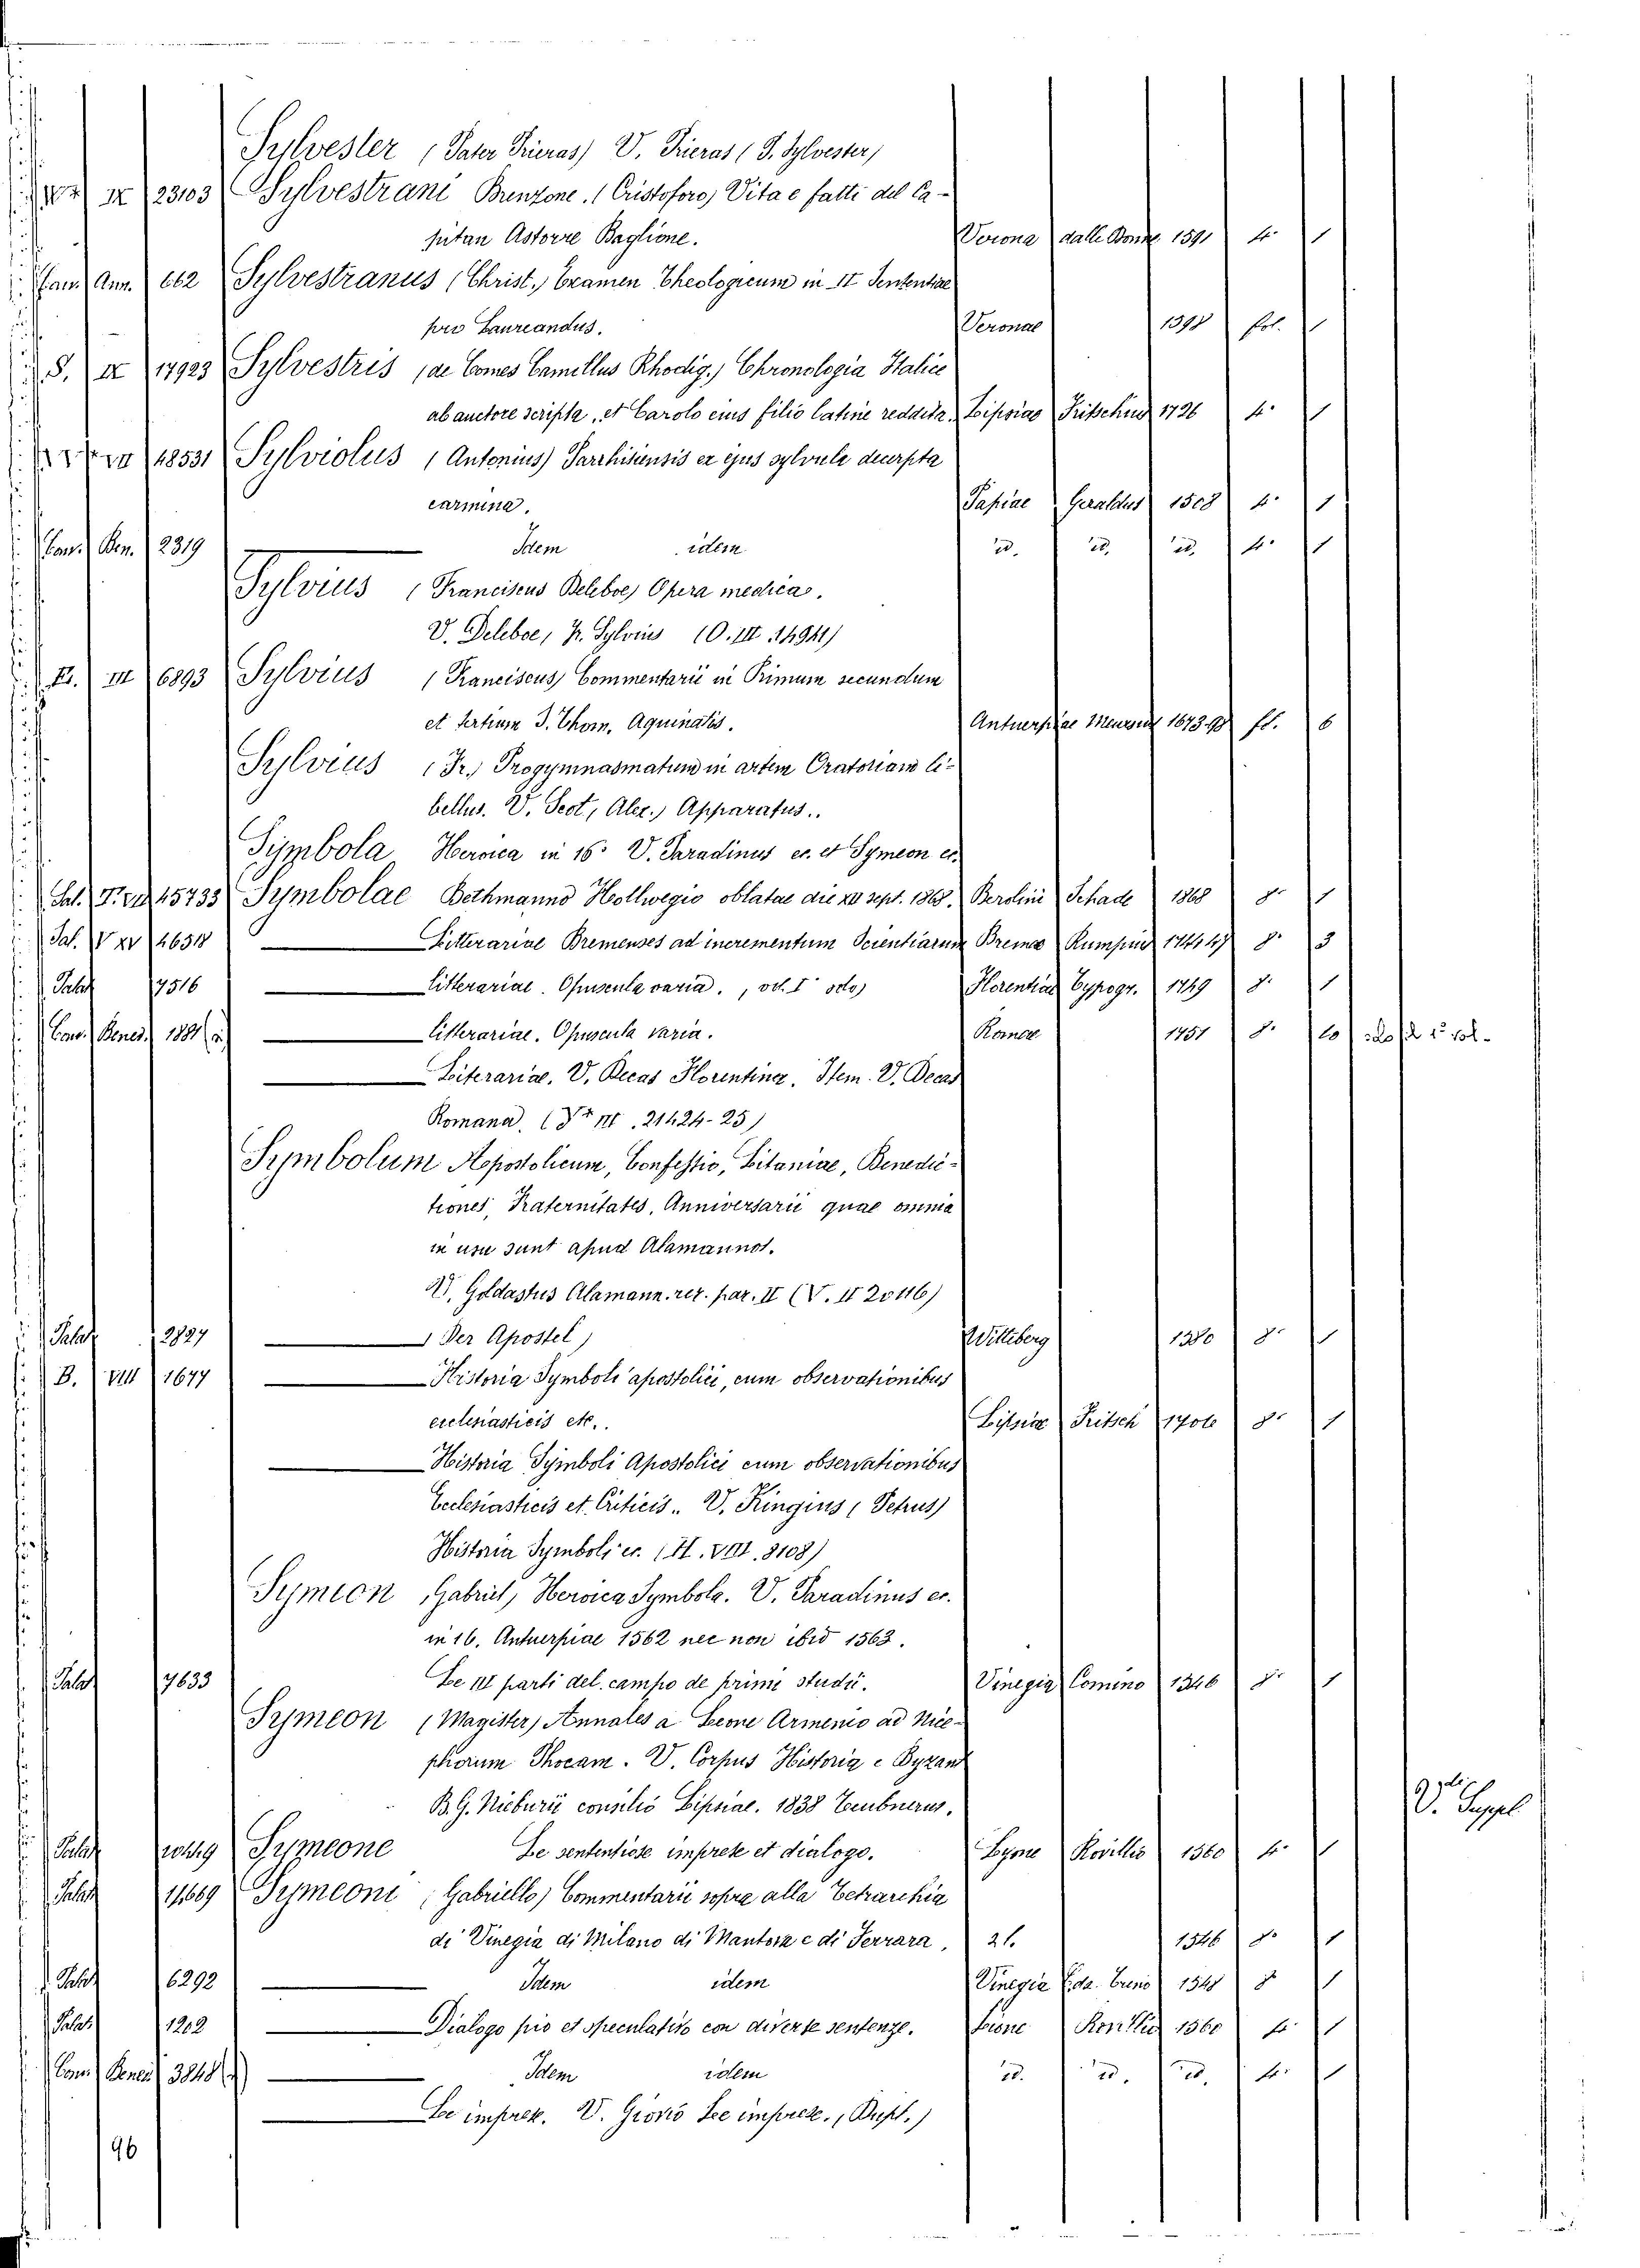 Sylvester (Pater Prieras) V. Prieras (S. Sylvester)
IX 23103 Sylvestrani Brenzone. (Cristoforo) Vita e fatti del Ca-
pitan Astorre Baglione. Verona dalle Donne 1591 4. 1
Ann. 662 Sylvestranus (Christ.) Examen Theologicum in IV Sententiae
pro Laureandus. Veronae 1598 fol. 1
S. IX 17923 Sylvestris (de Comes Camillus Rhodig.) Chronologia Italice
ab auctore scripta, et Carolo eius filio latine reddita. Lipsiae Fritschius 1726 4. 1
48531 Sylviolus (Antonius) Parrhisiensis ex ejus sylvula decerpta
carmina. Papiae Geraldus 1508 4. 1
Ben. 2319 Idem idem id. id. id. 4. 1
Sylvius (Franciscus Deleboe) Opera medica.
V. Deleboe, Fr. Sylvius (O. III 14941)
III 6893 Sylvius (Franciscus) Commentarii in Primum secundum
et tertium S. Thom. Aquinatis. Antuerpiae Meursius 1673-98 fl. 6
Sylvius (Fr.) Progymnasmatum in artem Oratoriam li-
bellus. V. Scot, Alex.) Apparatus..
Symbola Heroica in 16° V. Paradinus ec. et Symeon ec.
45733 Symbolae Bethmanno Hollwegio oblatae die XII sept. 1868. Berolini Schade 1868 8. 1
Sal. V XV 14651 Litterariae Bremenses ad incrementum Scientiarum Bremae Rumpius 1744-47 8. 3
Palat 7516 litterariae. Opuscula varia. (vol. I solo) Florentiae Typogr. 1749 8. 1
Conv. Bened. 1881 litterariae. Opuscula varia. Romae 1751 8. 10
Literariae. V. Decas Florentina. Item. V. Decas
Romana. 21424-25)
Symbolum Apostolicum, Confessio, Litaniae, Benedic-
tiones, Fraternitates, Anniversarii quae omnia
in usu sunt apud Alamannos.
V. Goldastus Alamann. rer. par. II (V. II 20116)
Palat 12827 (Der Apostel) Witteberg 1280 8. 1
B. VIII 1677 Historia Symboli apostolici, cum observationibus
ecclesiasticis etc. Lipsiae Fritsch 1706 8. 1
Historia Symboli Apostolici cum observationibus
Ecclesiasticis et Criticis.. V. Kingius (Petrus)
Historia Symboli ec. (H. VIII. 8108)
Symeon (Gabriel) Heroica Symbola. V. Paradinus ec.
in 16. Antuerpiae 1562 nec non ibid 1563.
Palat 7633 Le III parti del campo de primi studii. Vinegia Comino 1546 8. 1
Symeon (Magister) Annales a Leone Armenio ad Nice-
phorum Phocam. V. Corpus Historia e Byzant
B. G. Nieburii consilio Lipsiae. 1838 Teubnerus. V. Suppl
Palat Symeone Le sententiose imprese et dialogo. Lyone Rovillio 1560 4. 1
Palat 11669 Symeoni (Gabriello) Commentarii sopra alla Tetrarchia
di Vinegia di Milano di Mantova e di Ferrara. 1546 8. 1
Palat 6292 Idem idem Vinegia 1548 8 1
Palat 1202 Dialogo pio et speculativo con diverse sentenze. Lione 1560 4. 1
Conv. Bened. 3848 Idem idem id. id. id. 4. 1
Le imprese. V. Giovio Le imprese. (Dupl.)
96